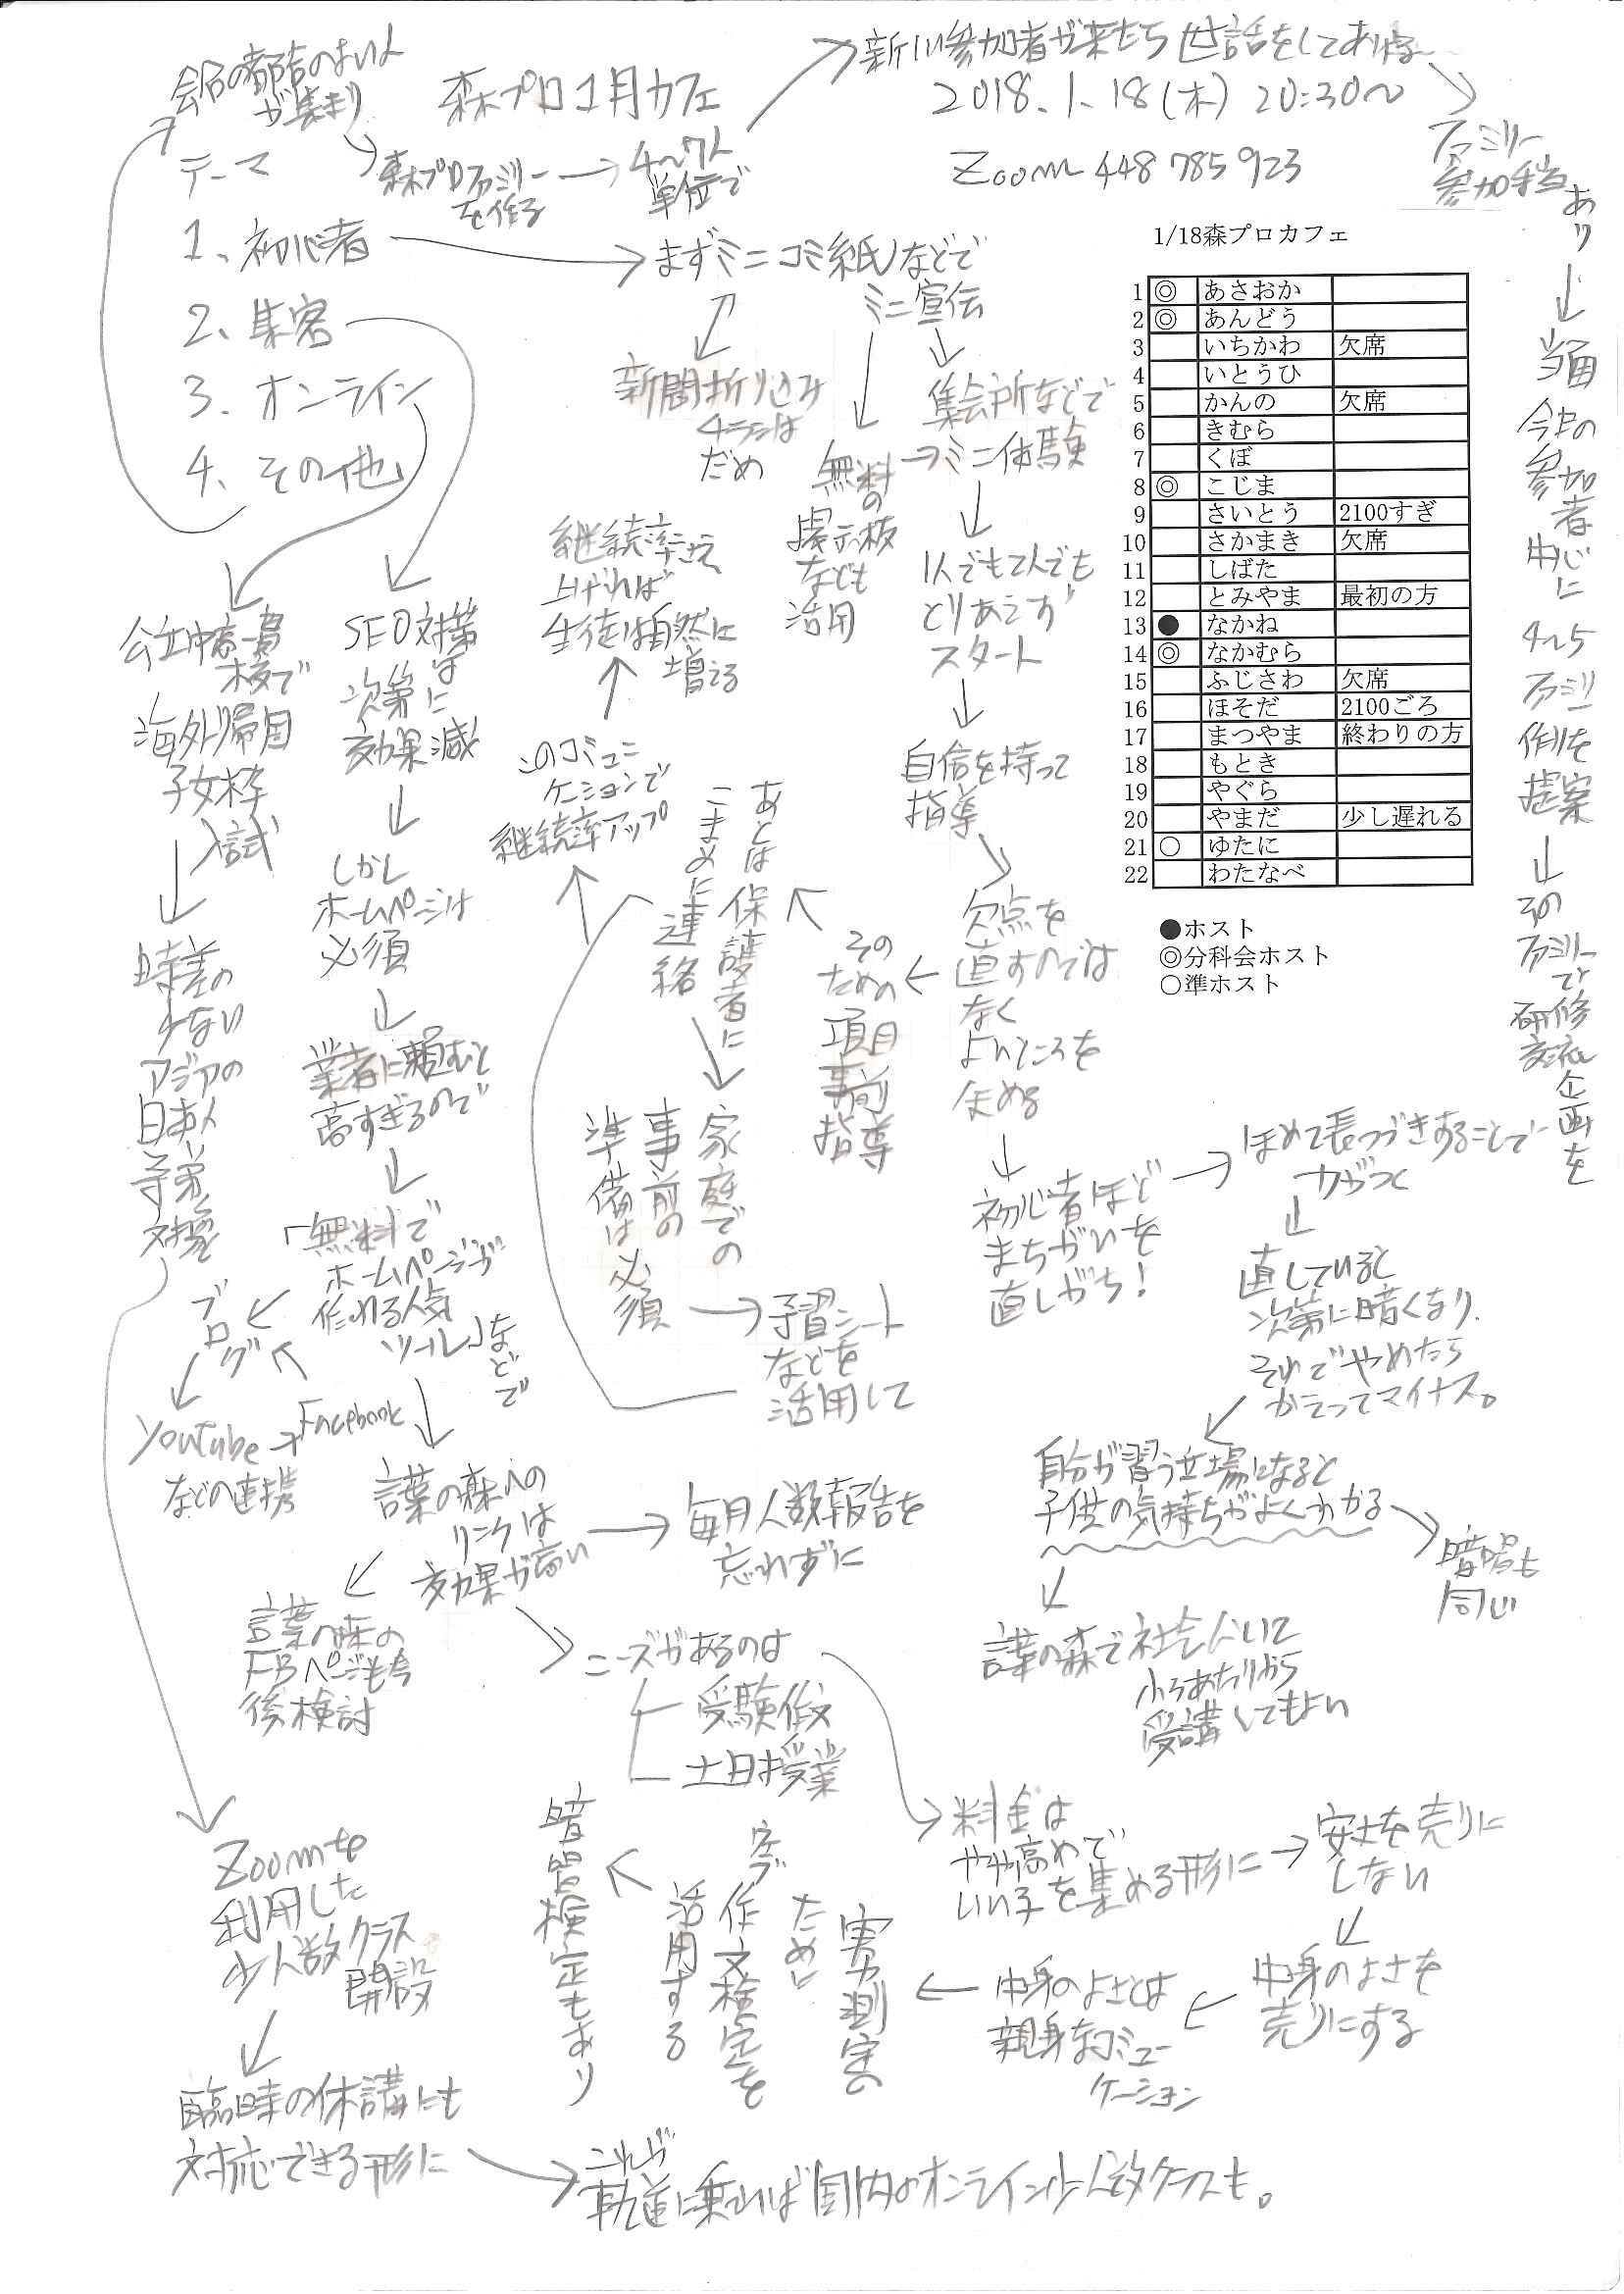 森プロ1月カフェ
2018.1.18(木) 20:30〜
Zoom 448 785 923
テーマ
1、初心者
2、集客
3、オンライン
4、その他
が集まり
森プロファミリー
を作る
4〜7人
単位で
新しい参加者が来たら世話をしてあげる
ファミリー
参加手当
あり
当面
今日の
参加
者
中心に
4〜5
ファミリ
作りを
提案
その
ファミリー
で
研修
交流
企画を
1/18森プロカフェ
1 ◎ あさおか
2 ◎ あんどう
3 いちかわ 欠席
4 いとうひ
5 かんの 欠席
6 きむら
7 くぼ
8 ◎ こじま
9 さいとう 2100すぎ
10 さかまき 欠席
11 しばた
12 とみやま 最初の方
13 ● なかね
14 ◎ なかむら
15 ふじさわ 欠席
16 ほそだ 2100ごろ
17 まつやま 終わりの方
18 もとき
19 やぐら
20 やまだ 少し遅れる
21 ○ ゆたに
22 わたなべ
●ホスト
◎分科会ホスト
○準ホスト
まずミニコミ紙などで
ミニ宣伝
新聞折り込み
チラシは
だめ
無料
の
掲示板
なども
活用
集会所などで
ミニ体験
1人でも2人でも
とりあえず
スタート
自信を持って
指導
欠点を
直すのでは
なく
よいところを
ほめる
その
ための
項目
事前
指導
あとは保護者に
こまめに連絡
このコミュニ
ケーションで
継続率アップ
継続率さえ
上げれば
生徒は自然に
増える
家庭での
事前の
準備は必須
予習シート
などを
活用して
初心者ほど
まちがいを
直しがち!
ほめて長つづきすることで
力がつく
直していると
次第に暗くなり、
それでやめたら
かえってマイナス。
自分が習う立場になると
子供の気持ちがよくわかる
暗唱も
同じ
言葉の森で社会人
受講してもよい
SEO対策
は
次第に
効果減
しかし
ホームページは
必須
業者に頼むと
高すぎるので
「無料で
ホームページが
作れる人気
ツール」など
で
ブログ
Youtube
Facebook
などの連携
言葉の森への
リンクは
効果が高い
毎月人数報告を
忘れずに
言葉の森の
FBページも今
後検討
ニーズがあるのは
受験作文
土日授業
料金は
やや高めで
いい子を集める形に
安さを売りに
しない
中身のよさを
売りにする
中身のよさとは
親身なコミュニ
ケーション
実力測定の
ために
作文検定を
活用する
暗唱検定もあり
公立中高一貫
校で
海外帰国
子女枠
入試
時差の
少ない
アジアの
日本人
子弟
対象
Zoomを
利用した
少人数クラス
開設
臨時の休講にも
対応できる形に
これが
軌道に乗れば国内のオンライン少人数クラスも。